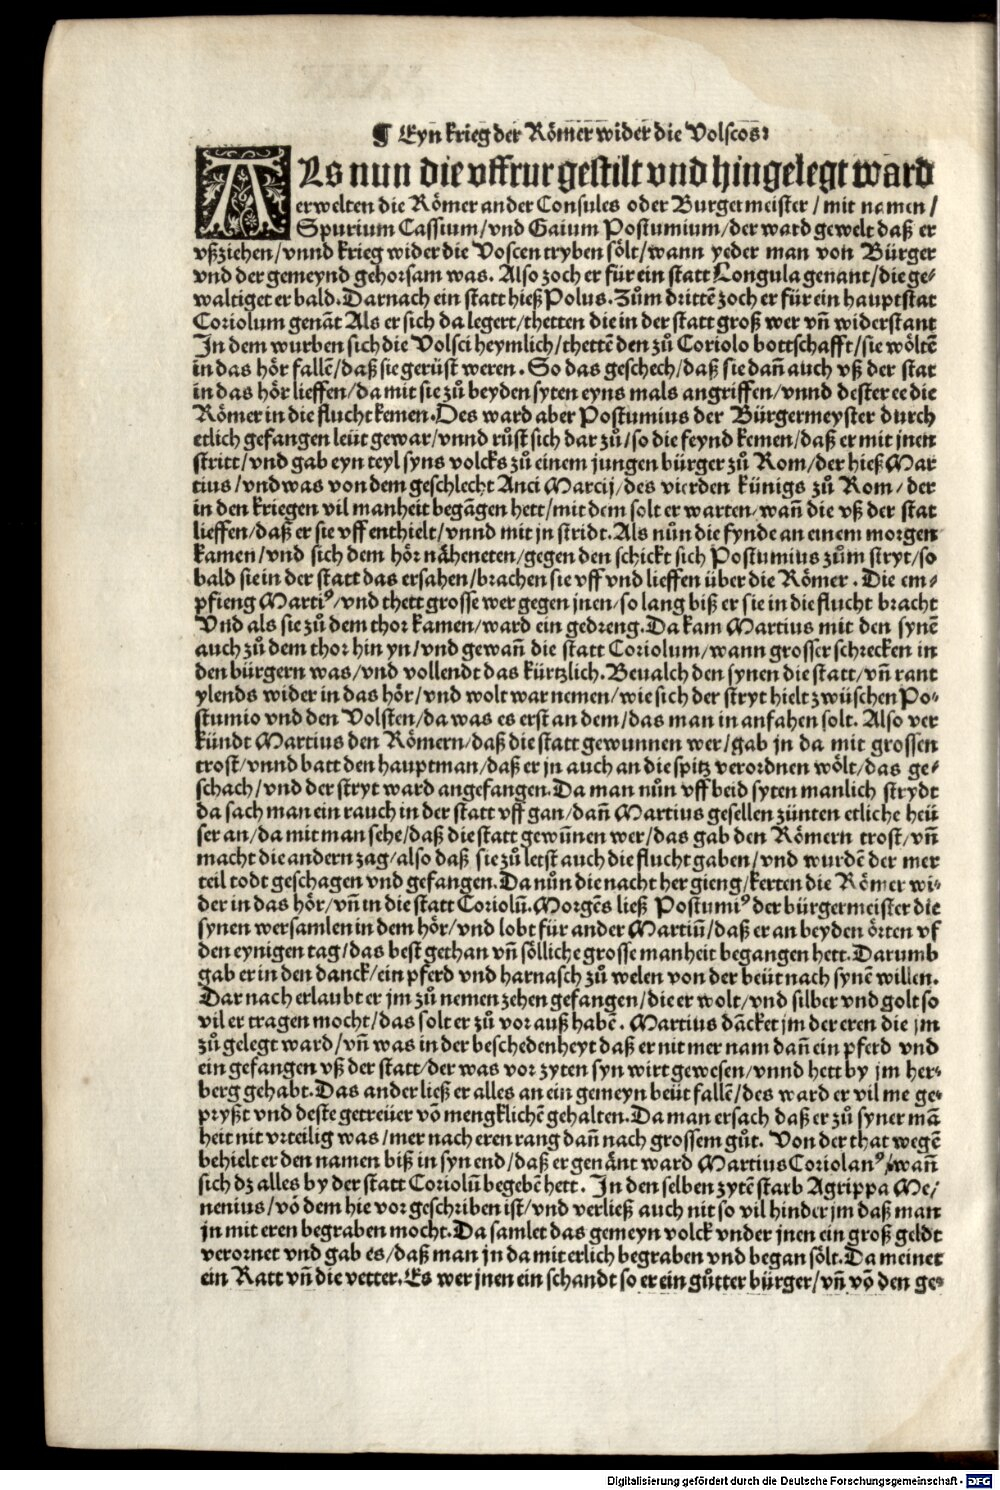 ¶ Eyn krieg der Römer wider die Volscos:
ALs nun die vffrur gestilt vnd hingelegt ward
erwelten die Römer ander Consules oder Burgermeister / mit namen /
Spurium Cassium / vnd Gaium Postumium / der ward gewelt daß er
vßziehen / vnnd krieg wider die Voscen tryben sölt / wann yeder man von Bürger
vnd der gemeynd gehorsam was. Also zoch er für ein statt Longula genant / die ge⸗
waltiget er bald. Darnach ein statt hieß Polus. Zům drittē zoch er für ein hauptstat
Coriolum genāt Als er sich da legert / thetten die in der statt groß wer vn̄ widerstant
In dem wurben sich die Volsci heymlich / thettē den zů Coriolo bottschafft / sie wöltē
in das hör fallē / daß sie gerüst weren. So das geschech / daß sie dan̄ auch vß der stat
in das hör lieffen / da mit sie zů beyden syten eyns mals angriffen / vnnd dester ee die
Römer in die flucht kemen. Des ward aber Postumius der Bürgermeyster durch
etlich gefangen leüt gewar / vnnd růst sich dar zů / so die feynd kemen / daß er mit jnen
stritt / vnd gab eyn teyl syns volcks zů einem jungen bürger zů Rom / der hieß Mar
tius / vnd was von dem geschlecht Anci Marcij / des vierden künigs zů Rom / der
in den kriegen vil manheit begāgen hett / mit dem solt er warten / wan̄ die vß der stat
lieffen / daß er sie vff enthielt / vnnd mit jn stridt. Als nůn die fynde an einem morgen
kamen / vnd sich dem hör näheneten / gegen den schickt sich Postumius zům stryt / so
bald sie in der statt das ersahen / brachen sie vff vnd lieffen über die Römer. Die em⸗
pfieng Martiꝰ / vnd thett grosse wer gegen jnen / so lang biß er sie in die flucht bracht
Vnd als sie zů dem thor kamen / ward ein gedreng. Da kam Martius mit den synē
auch zů dem thor hin yn / vnd gewan̄ die statt Coriolum / wann grosser schrecken in
den bürgern was / vnd vollendt das kürtzlich. Beualch den synen die statt / vn̄ rant
ylends wider in das hör / vnd wolt war nemen / wie sich der stryt hielt zwüschen Po⸗
stumio vnd den Volsten / da was es erst an dem / das man in anfahen solt. Also ver
kündt Martius den Römern / daß die statt gewunnen wer / gab jn da mit grossen
trost / vnnd batt den hauptman / daß er jn auch an die spitz verordnen wölt / das ge⸗
schach / vnd der stryt ward angefangen. Da man nůn vff beid syten manlich strydt
da sach man ein rauch in der statt vff gan / dan̄ Martius gesellen zünten etliche heü
ser an / da mit man sehe / daß die statt gewūnen wer / das gab den Römern trost / vn̄
macht die andern zag / also daß sie zů letst auch die flucht gaben / vnd wurdē der mer
teil todt geschagen vnd gefangen. Da nůn die nacht her gieng / kerten die Römer wi⸗
der in das hör / vn̄ in die statt Coriolū. Morgēs ließ Postumiꝰ der bürgermeister die
synen versamlen in dem hör / vnd lobt für ander Martiū / daß er an beyden örten vf
den eynigen tag / das best gethan vn̄ sölliche grosse manheit begangen hett. Darumb
gab er in den danck / ein pferd vnd harnasch zů welen von der beüt nach synē willen.
Dar nach erlaubt er jm zů nemen zehen gefangen / die er wolt / vnd silber vnd golt so
vil er tragen mocht / das solt er zů vor auß habē. Martius dācket jm der eren die jm
zů gelegt ward / vn̄ was in der beschedenheyt daß er nit mer nam dan̄ ein pferd vnd
ein gefangen vß der statt / der was vor zyten syn wirt gewesen / vnnd hett by jm her⸗
berg gehabt. Das ander ließ er alles an ein gemeyn beüt fallē / des ward er vil me ge⸗
pryßt vnd deste getreüer vō mengklichē gehalten. Da man ersach daß er zů syner mā
heit nit vrteilig was / mer nach eren rang dan̄ nach grossem gůt. Von der that wegē
behielt er den namen biß in syn end / daß er genānt ward Martius Coriolanꝰ / wan̄
sich dz alles by der statt Coriolū begebē hett. In den selben zytē starb Agrippa Me⸗
nenius / vō dem hie vor geschriben ist / vnd verließ auch nit so vil hinder jm daß man
jn mit eren begraben mocht. Da samlet das gemeyn volck vnder jnen ein groß geldt
verornet vnd gab es / daß man jn da mit erlich begraben vnd began sölt. Da meinet
ein Ratt vn̄ die vetter. Es wer jnen ein schandt so er ein gůtter bürger / vn̄ vō den ge⸗
Digitalisierung gefördert durch die Deutsche Forschungsgemeinschaft - DFG